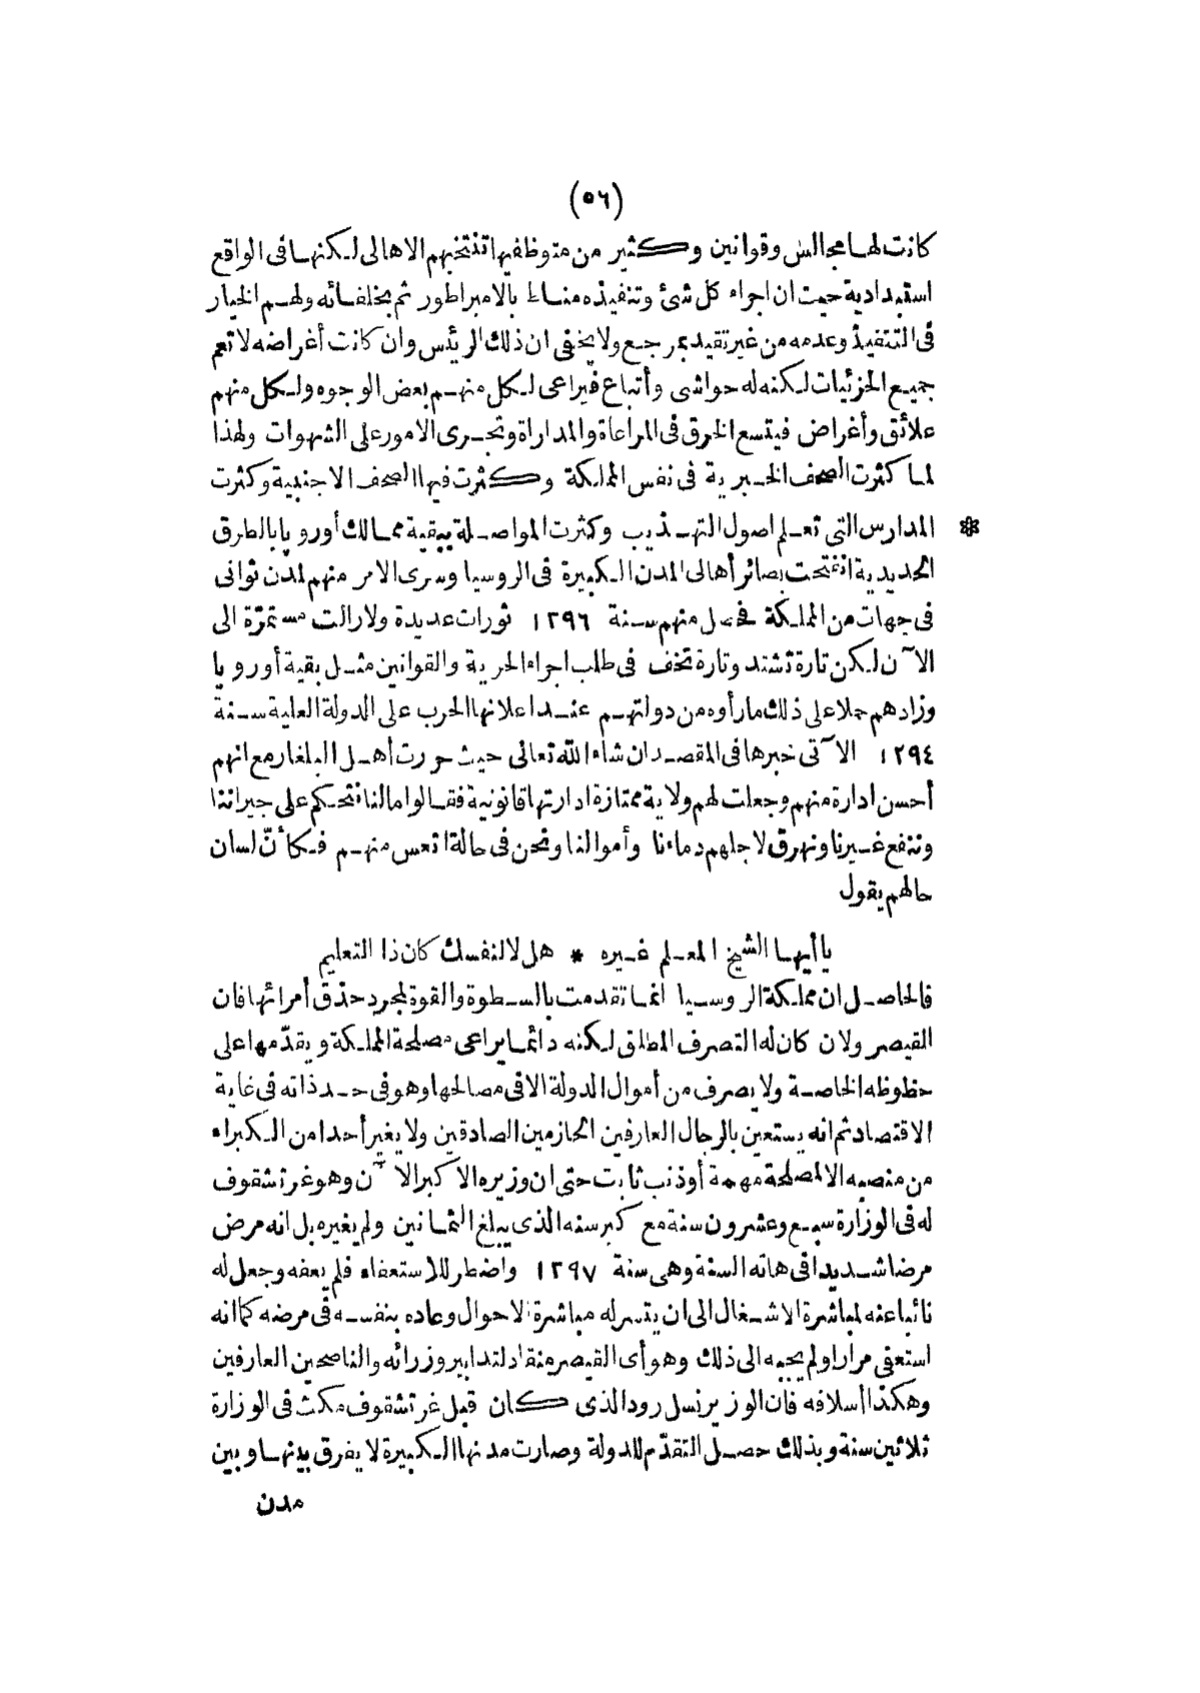 (٥٦)
كانت لها مجالس وقوانين وكثير من متوظفيها تنتخبهم الاهالى لكنها فى الواقع
استبدادية حيث ان اجراء كل شئ وتنفيذه مناط بالامبراطور ثم بخلفائه ولهم الخيار
فى التنفيذ وعدمه من غير تقيد بمرجع ولا يخفى ان ذلك الرئيس وان كانت أغراضه لا تعم
جميع الجزئيات لكنه له حواشى وأتباع فيراعى لكل منهم بعض الوجوه ولكل منهم
علائق وأغراض فيتسع الخرق فى المراعاة والمداراة وتجرى الامور على الشهوات ولهذا
لما كثرت الصحف الخبرية فى نفس المملكة وكثرت فيها الصحف الاجنبية وكثرت
* المدارس التى تعلم اصول التهذيب وكثرت المواصلة ببقية ممالك أوروپا بالطرق
الحديدية انفتحت بصائر أهالى المدن الكبيرة فى الروسيا وسرى الامر منهم لمدن ثوانى
فى جهات من المملكة فحصل منهم سنة ١٢٩٦ ثورات عديدة ولازالت مستمرّة الى
الآن لكن تارة تشتد وتارة تخف فى طلب اجراء الحرية والقوانين مثل بقية أوروپا
وزادهم حملا على ذلك ما رأوه من دولتهم عند اعلانها الحرب على الدولة العلية سنة
١٢٩٤ الآتى خبرها فى المقصد ان شاء الله تعالى حيث حررت أهل البلغار مع انهم
أحسن ادارة منهم وجعلت لهم ولاية ممتازة ادارتها قانونية فقالوا مالنا نتحكم على جيراننا
وننفع غيرنا ونهرق لاجلهم دماءنا وأموالنا ونحن فى حالة اتعس منهم فكأنّ لسان
حالهم يقول
يا أيها الشيخ المعلم غيره * هل لا لنفسك كان ذا التعليم
فالحاصل ان مملكة الروسيا انما تقدمت بالسطوة والقوة لمجرد حذق أمرائها فان
القيصر ولان كان له التصرف المطلق لكنه دائما يراعى مصلحة المملكة ويقدّمها على
حظوظه الخاصة ولا يصرف من أموال الدولة الا فى مصالحها وهو فى حد ذاته فى غاية
الاقتصاد ثم انه يستعين بالرجال العارفين الحازمين الصادقين ولا يغير أحدا من الكبراء
من منصبه الا لمصلحة مهمة أو ذنب ثابت حتى ان وزيره الاكبر الآن وهو غرتشقوف
له فى الوزارة سبع وعشرون سنة مع كبر سنه الذى يبلغ الثمانين ولم يغيره بل انه مرض
مرضا شديدا فى هاته السنة وهى سنة ١٢٩٧ واضطر للاستعفاء فلم يعفه وجعل له
نائبا عنه لمباشرة الاشغال الى ان يتسر له مباشرة الاحوال وعاده بنفسه فى مرضه كما انه
استعفى مرارا ولم يجبه الى ذلك وهو أى القيصر منقاد لتدابير وزرائه والناصحين العارفين
وهكذا أسلافه فان الوزير نسل رود الذى كان قبل غرتشقوف مكث فى الوزارة
ثلاثين سنة وبذلك حصل التقدّم للدولة وصارت مدنها الكبيرة لا يفرق بينها وبين
مدن